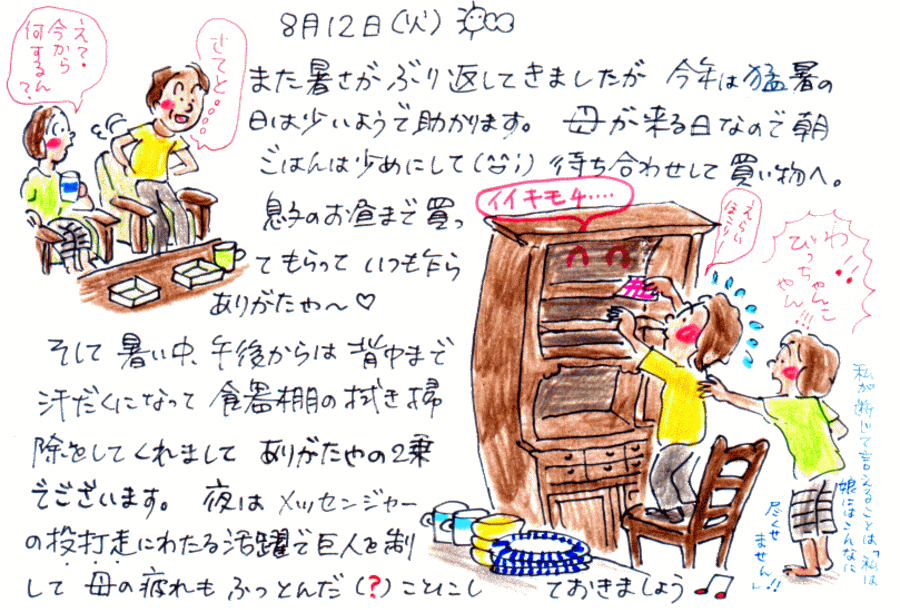 8月12日(火)
また暑さがぶり返してきましたが 今年は猛暑の
日は少いようで助かります。 母が来る日なので朝
ごはんは少めにして(^^;) 待ち合わせして買い物へ。
息子のお昼まで買っ
てもらって いつも乍ら
ありがたや〜♡
そして 暑い中、午後からは 背中まで
汗だくになって 食器棚の拭き掃
除をしてくれまして ありがたやの2乗
でございます。 夜は メッセンジャー
の投打走にわたる活躍で巨人を制
して 母の疲れも ふっとんだ(?)ことにし ておきましょう♫
えて・
今から
何するん
て
さてと・・・・
イイキモチ・・・・
えらい
ほこり!
わ!!
びっちゃんこ
やん!!!
私が断じて言えることは「私は
娘にはこんなに
尽くせ
ません」!!